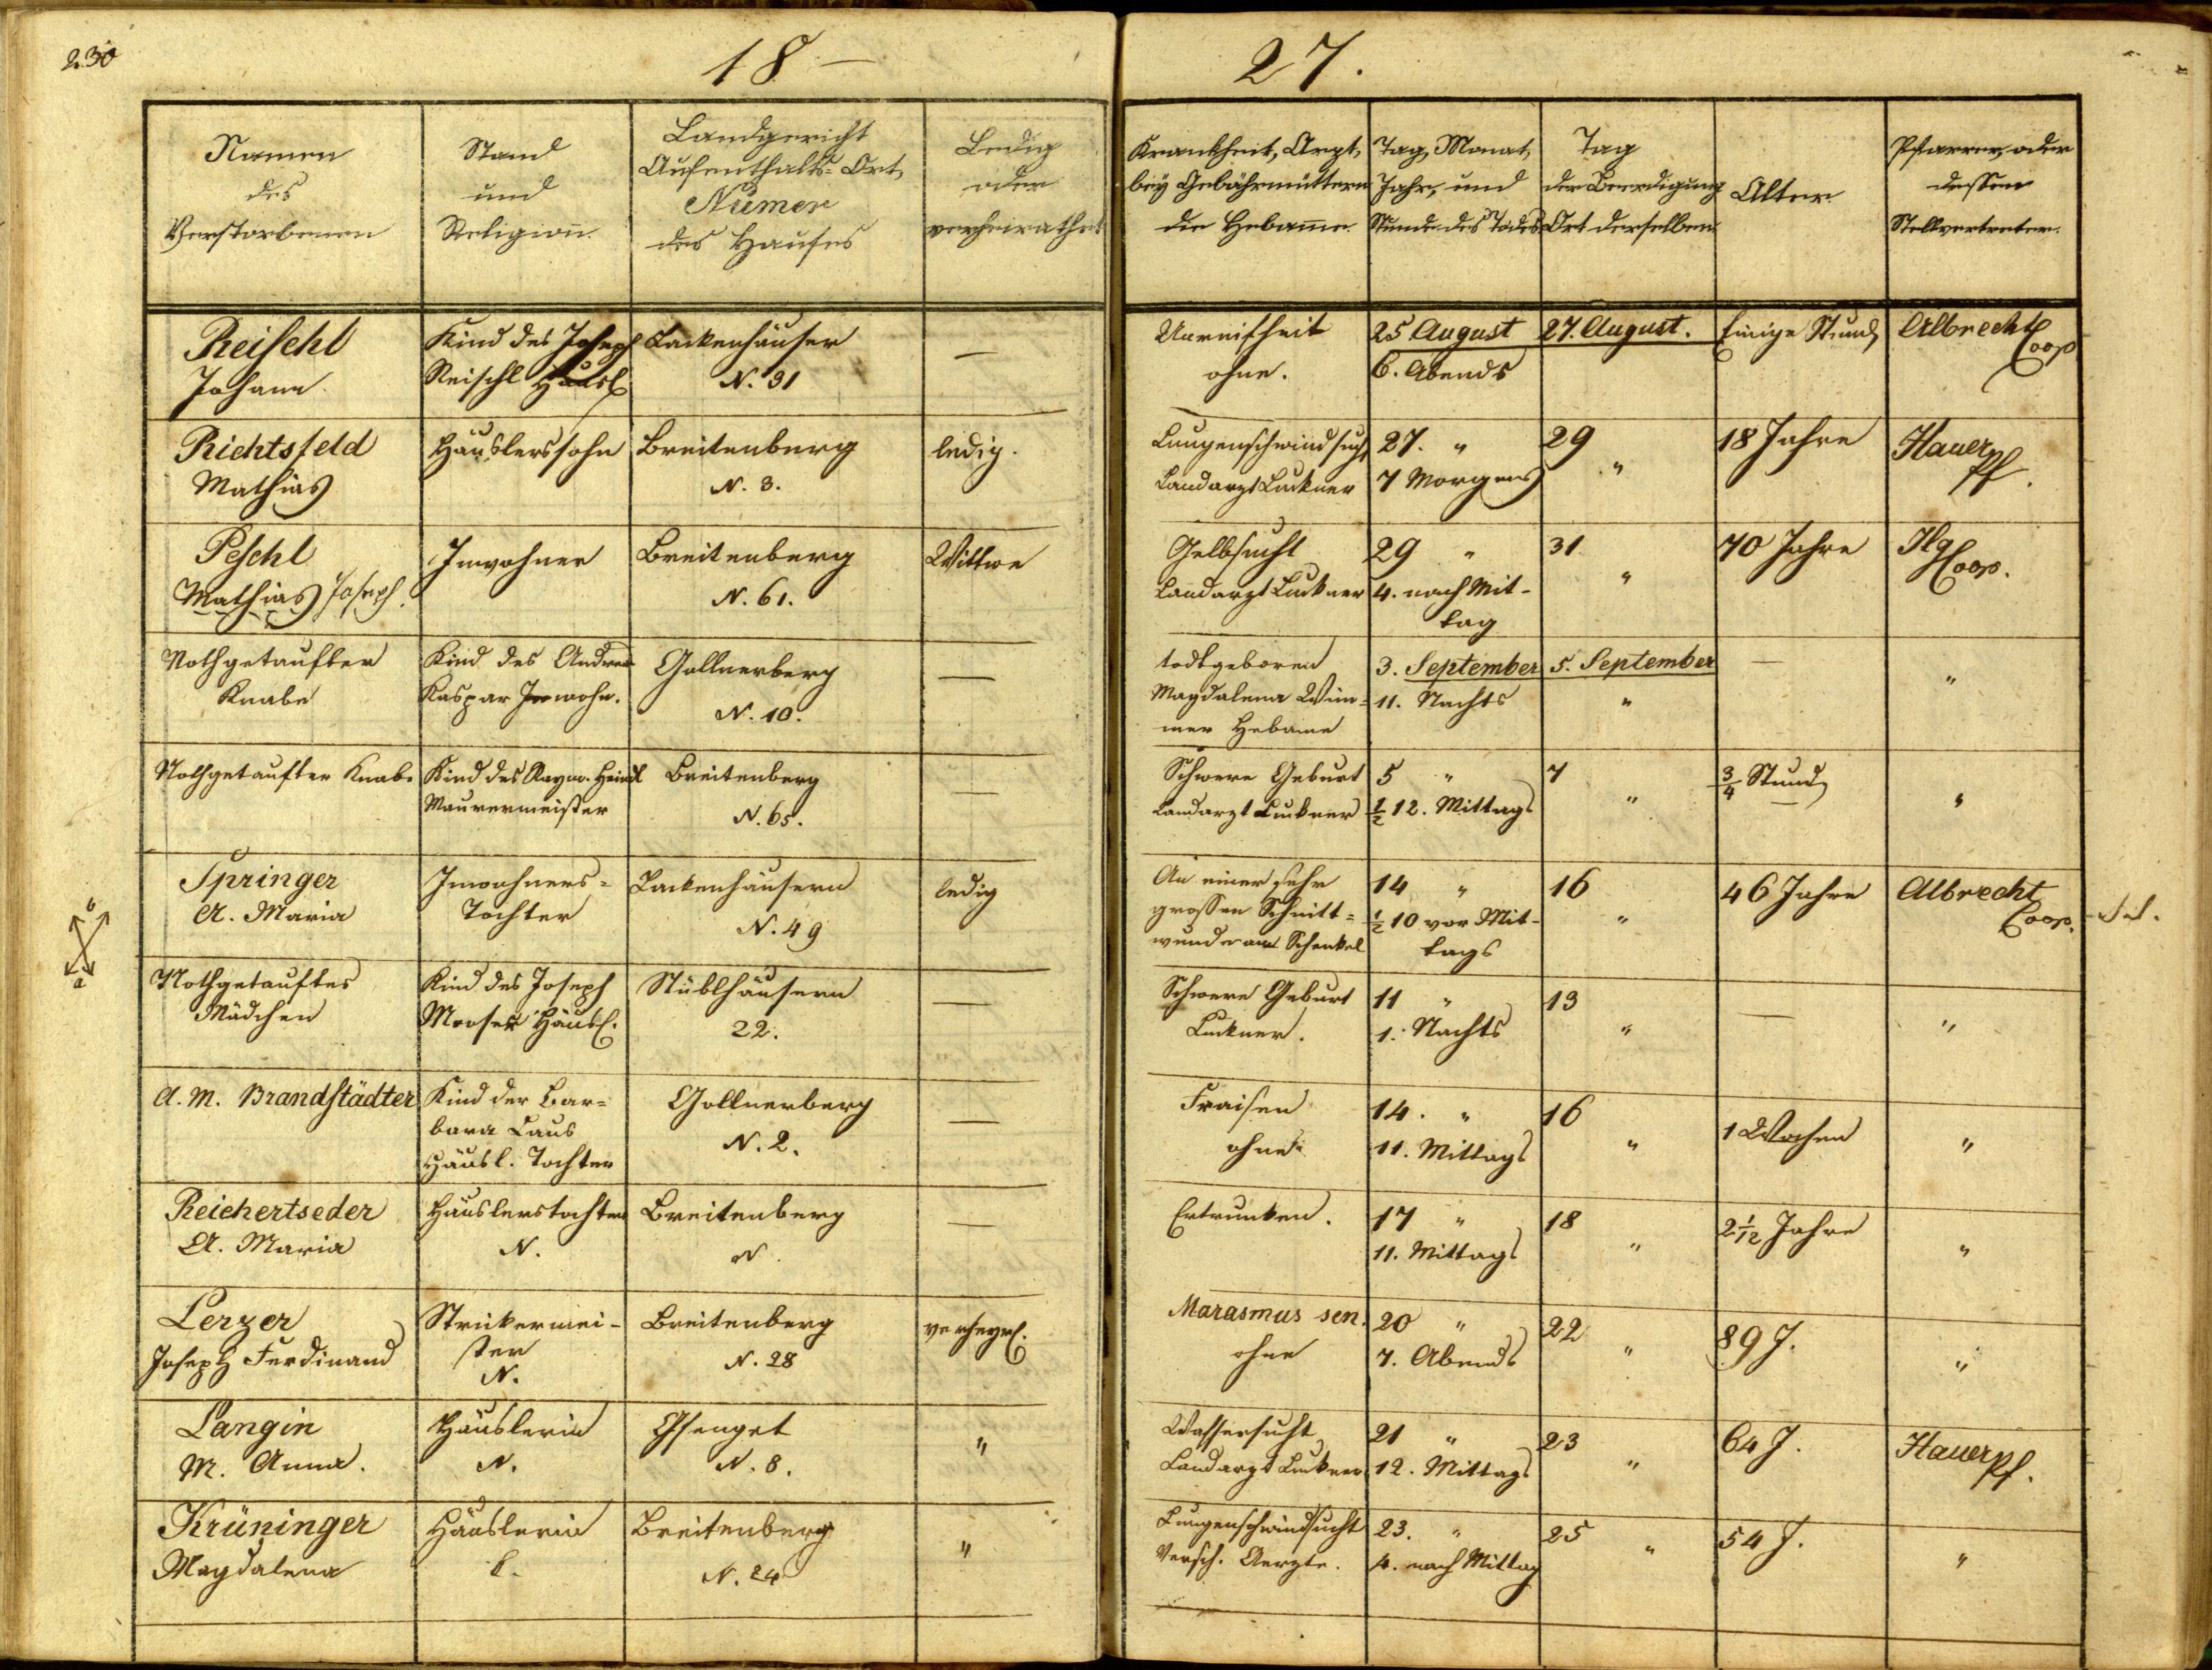 230
18 —
27.
Namen
des
Verstorbenen
Stand
und
Religion.
Landgericht
Aufenthalts=Ort,
Numer
des Hauses
Ledig
oder
verheirathet
Krankheit, Arzt,
bey Gebährmüttern
die Hebame.
Tag, Monat,
Jahr, und
Stunde des Todes
Tag
der Beerdigung
Ort derselben.
Alter
Pfarrer, oder
dessen
Stellvertreter.
Reischl
Johann.
Kind des Joseph
Reischl Häusl.
Lackenhäuser
N. 31
—
Unreifheit
ohne.
25 August
6. Abends
27. August.
Einige Stund
Albrecht
Coop
Richtsfeld
Mathias
Häuslerssohn
Breitenberg
N. 3.
ledig.
Lungenschwindsucht
Landarzt Luckner
27. "
7 Morgens
29
"
18 Jahre
Hauer
Pf.
Peschl
Mathias Joseph.
Inwohner
Breitenberg
N. 61.
Wittwe
Gelbsucht
Landarzt Luckner
29 "
4. nach Mit-
tag
31
"
70 Jahre
Ilg
Coop.
Nothgetaufter
Knabe
Kind des Andreas
Kaspar Inwohn.
Gollnerberg
N. 10.
—
todtgeboren
Magdalena Wim=
mer Hebame
3. September
11. Nachts
5. September
"
—
"
Nothgetaufter Knabe
Kind des Raym. Heindl
Maurermeister
Breitenberg
N. 65.
—
Schwere Geburt
Landarzt Luckner
5 "
1/2 12. Mittags
7
"
3/4 Stund
"
Springer
A. Maria
Inwohners=
Tochter
Lackenhäusern
N. 49
ledig
An einer sehr
grossen Schnitt=
wunde am Schenkel
14 "
1/2 10 vor Mit-
tags
16
"
46 Jahre
Albrecht
Coop.
b
a
Nothgetauftes
Mädchen
Kind des Joseph
Mooser Häusl.
Stüblhäusern
22.
—
Schwere Geburt
Luckner.
11 "
1. Nachts
13
"
—
"
A. M. Brandstädter
Kind der Bar=
bara Laus
Häusl. Tochter
Gollnerberg
N. 2.
—
Fraisen
ohne
14. "
11. Mittags
16
"
1 Wochen
"
Reichertseder
A. Maria
Häuslerstochter
N.
Breitenberg
N.
—
Ertrunken.
17 "
11. Mittags
18
"
2 1/12 Jahre
"
Lerzer
Joseph Ferdinand
Strickermei-
ster
N.
Breitenberg
N. 28
verheyr.
Marasmus sen.
ohne
20 "
7. Abends
22
"
89 J.
"
Langin
M. Anna.
Häuslerin
N.
Gsenget
N. 8.
"
Wassersucht
Landarzt Luckner
21 "
12. Mittags
23
"
64 J.
Hauer
Pf.
Krüninger
Magdalena
Häuslerin
Breitenberg
N. 24
"
Lungenschwindsucht
Versch. Aerzte.
23. "
4. nach Mittag
25
"
54 J.
"